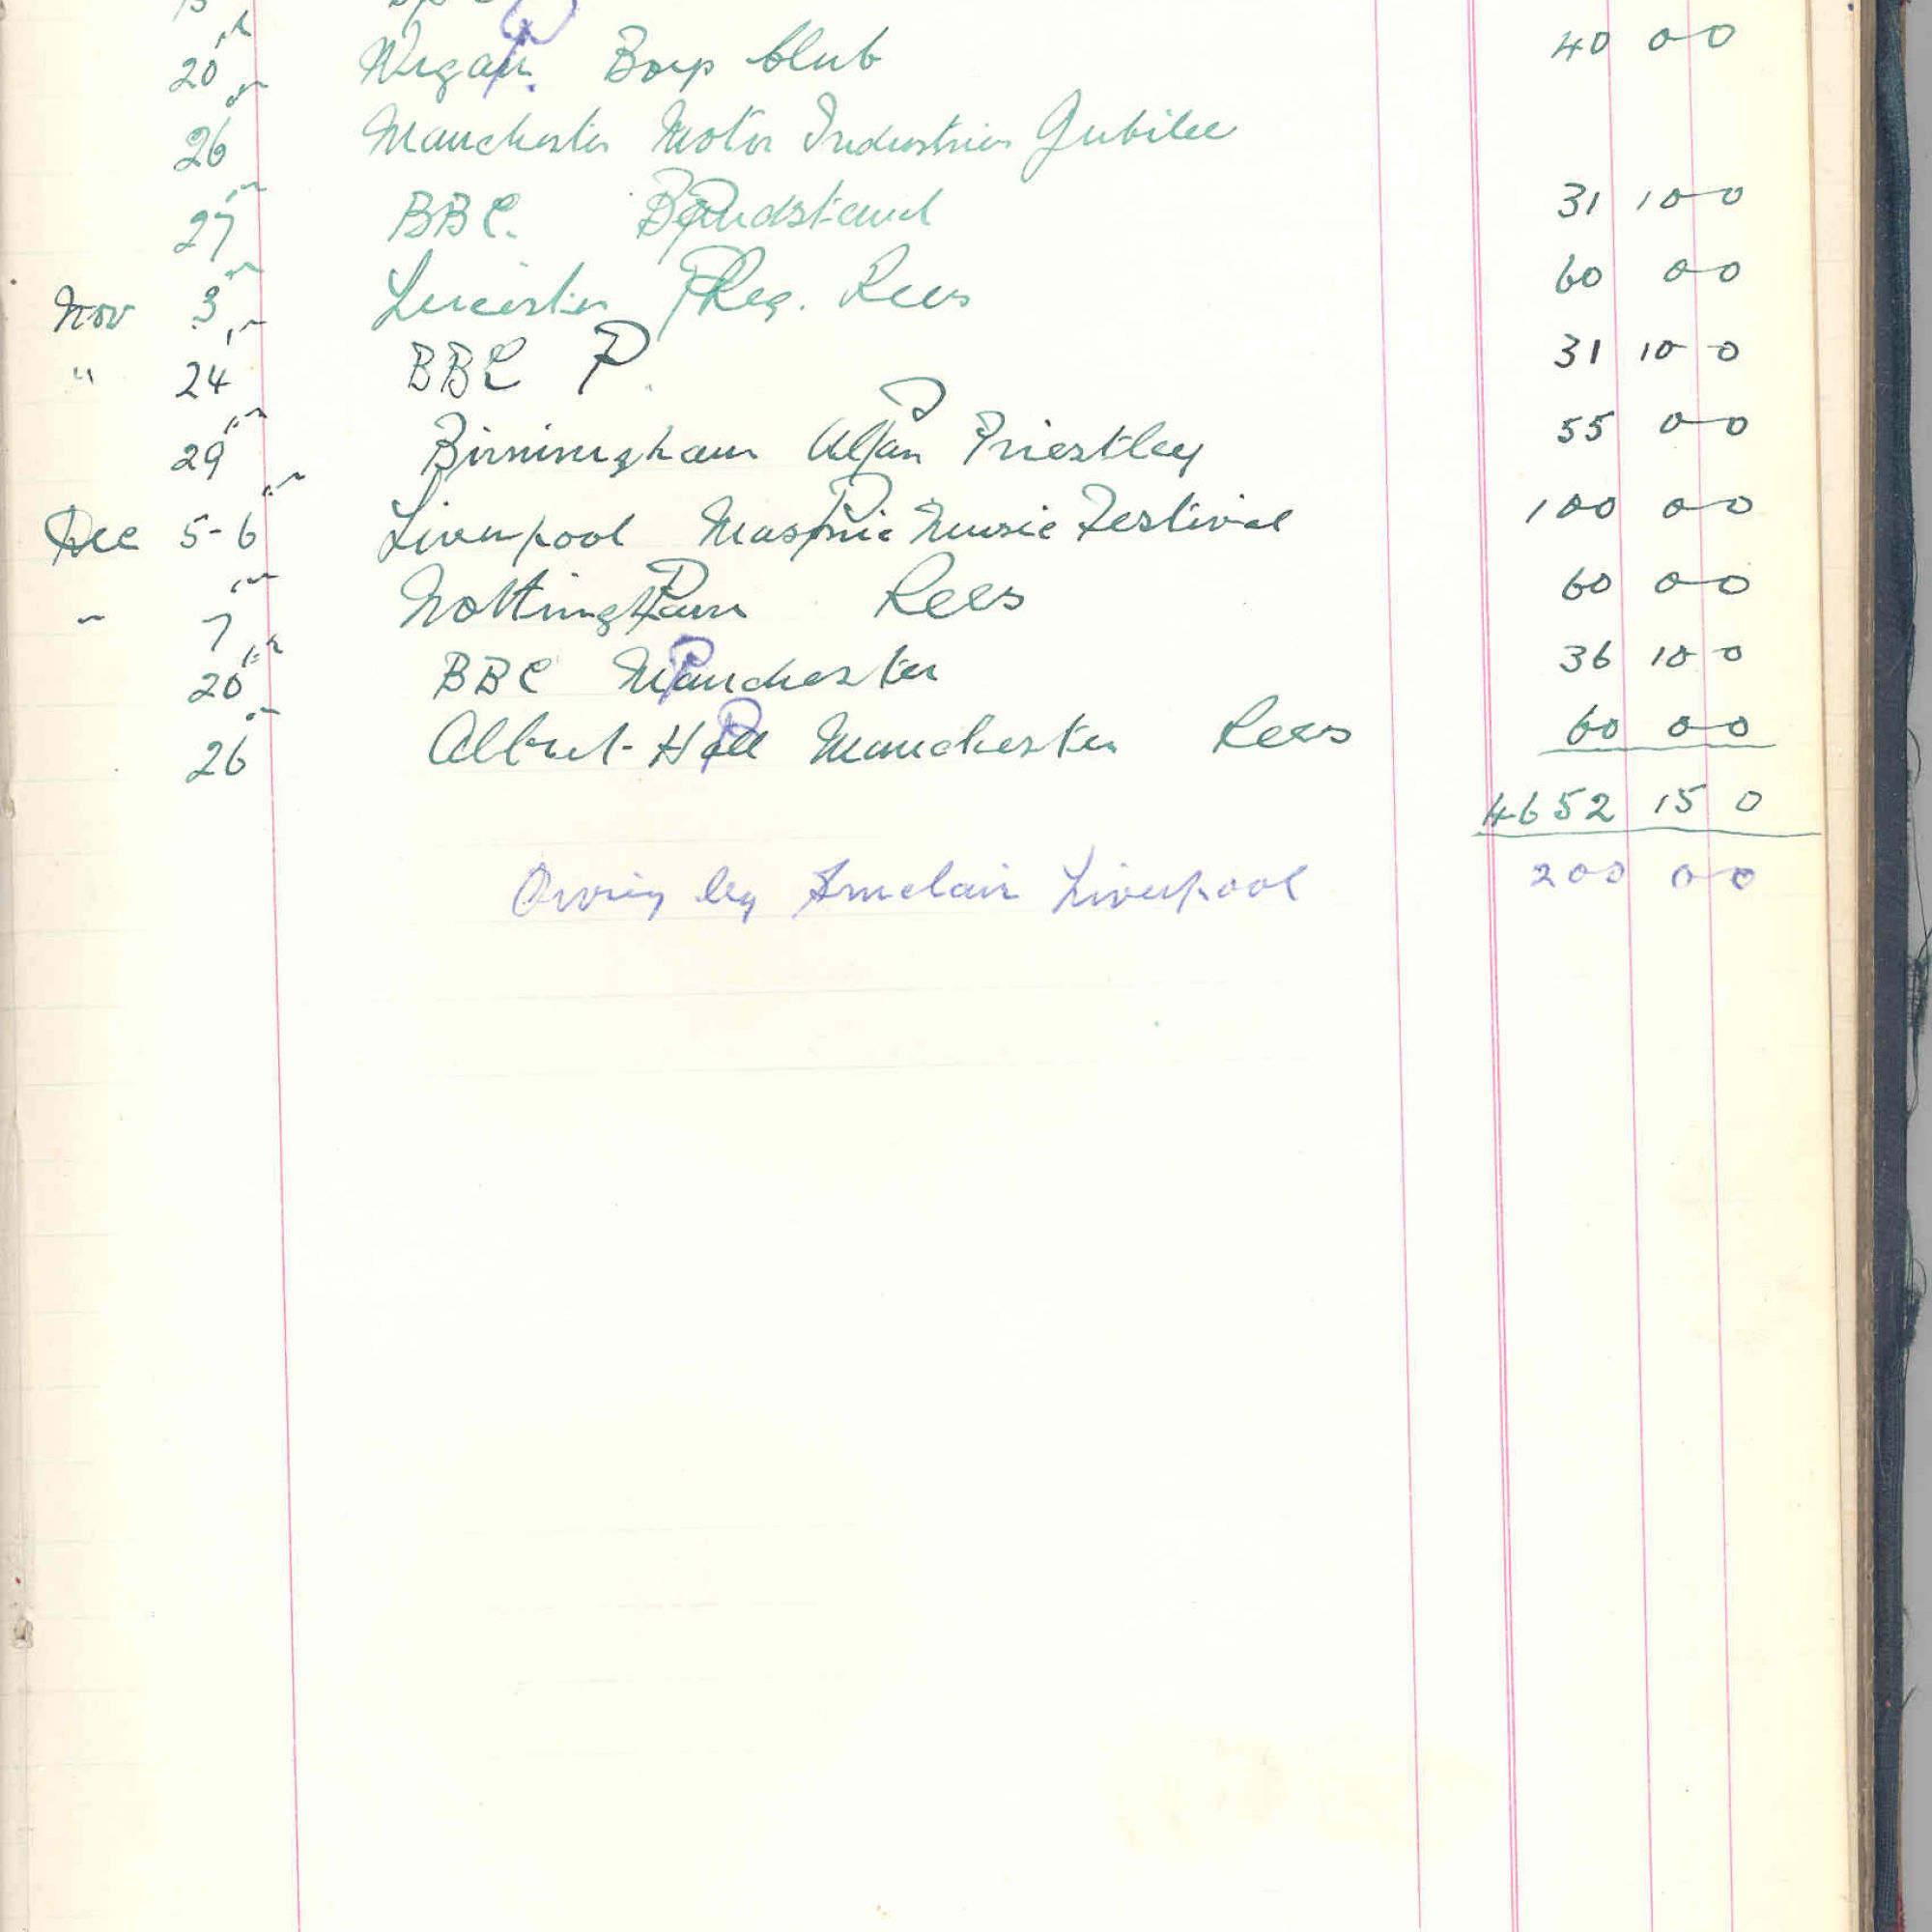 20th Wigan P Boys Club 40 0 0
26th Manchester Motor Industries Jubilee
27th BBC. Bandstand P 31 10 0
Nov 3rd Leicester P Reg. Rees 60 0 0
" 24th BBC P. 31 10 0
29th Birmingham Alfan Priestley P 55 0 0
Dec 5-6th Liverpool Masonic Music Festival P 100 0 0
" 7th Nottingham P Rees 60 0 0
20th BBC Manchester P 36 10 0
26th Albert Hall P Manchester Rees 60 0 0
4652 15 0
Owing by Sinclair Liverpool 200 0 0